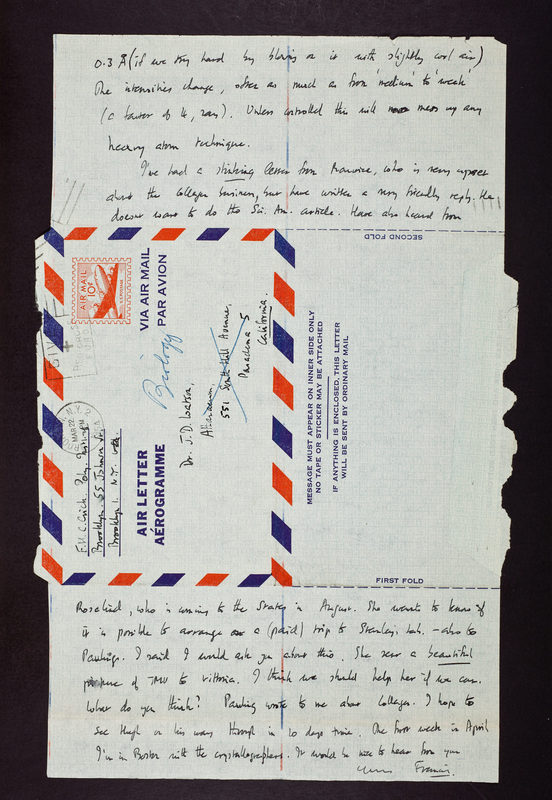 0.3 Å (if we try hard by blowing on it with slightly cool air)
The intensities change, often as much as from 'medium' to 'weak'
(a factor of 4, say). Unless controlled this will mess up any
heavy atom technique.
I've had a stinking letter from Maurice, who is very upset
about the Collagen business, but have written a very friendly reply. He
doesn't want to do the Sci. Am. article. Have also heard from
SECOND FOLD
AIR MAIL
10¢
VIA AIR MAIL
PAR AVION
Biology
Dr. J.D. Watson,
Athenaeum,
551 South Hill Avenue,
Pasadena 5
California.
MAR 22
F.H.C. Crick, Poly.
Brooklyn. 55 Johnson St.
Brooklyn 1. N.Y.
AIR LETTER
AÉROGRAMME
MESSAGE MUST APPEAR ON INNER SIDE ONLY
NO TAPE OR STICKER MAY BE ATTACHED
IF ANYTHING IS ENCLOSED, THIS LETTER
WILL BE SENT BY ORDINARY MAIL
FIRST FOLD
Rosalind, who is coming to the States in August. She wants to know if
it is possible to arrange a (paid) trip to Stanley's Lab. – also to
Paulings. I said I would ask you about this. She sent a beautiful
picture of TMV to Vittoria. I think we should help her if we can.
What do you think? Pauling wrote to me about Collagen. I hope to
see Hugh on his way through in 10 days time. The first week in April
I'm in Boston with the crystallographers. It would be nice to hear from you
Yours Francis.